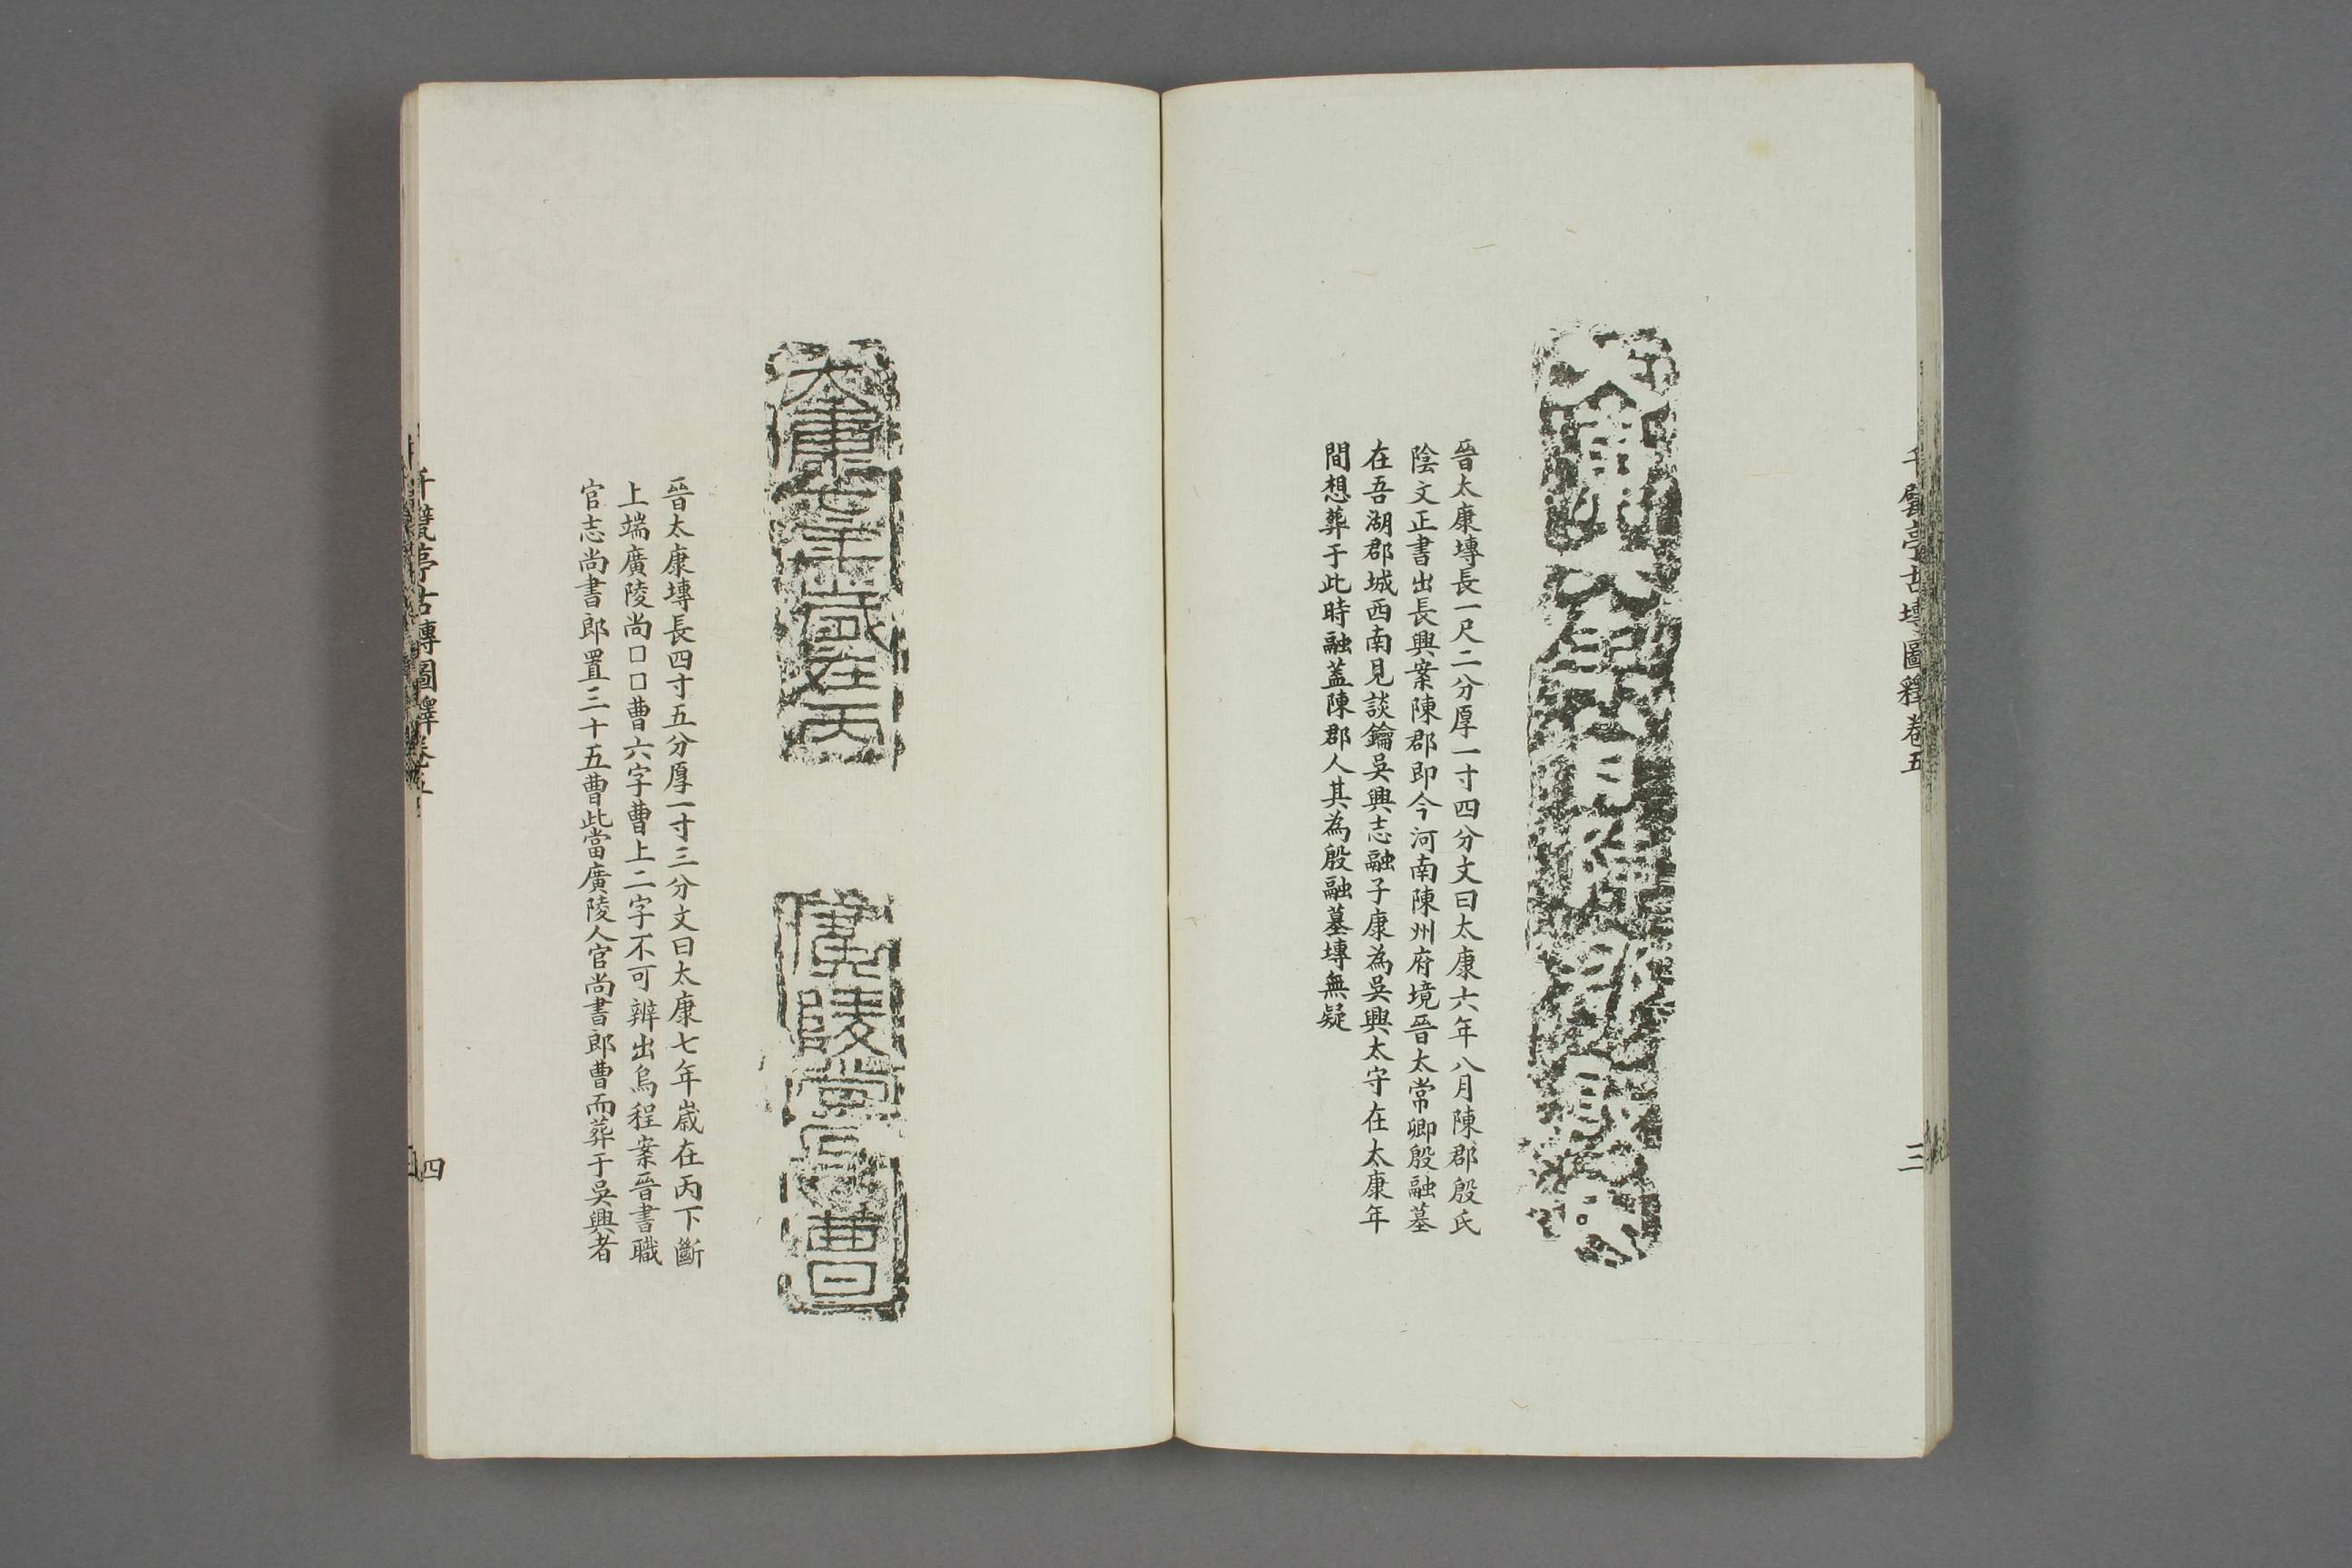 千甓亭古塼圖釋卷五
三
太康六年八月陳郡殷氏
晉太康塼長一尺二分厚一寸四分文曰太康六年八月陳郡殷氏
陰文正書出長興案陳郡即今河南陳州府境晉太常卿殷融墓
在吾湖郡城西南見談鑰吳興志融子康為吳興太守在太康年
間想葬于此時融蓋陳郡人其為殷融墓塼無疑
太康七年歲在丙
廣陵尚
曹
晉太康塼長四寸五分厚一寸三分文曰太康七年歲在丙下斷
上端廣陵尚□□曹六字曹上二字不可辨出烏程案晉書職
官志尚書郎置三十五曹此當廣陵人官尚書郎曹而葬于吳興者
千甓亭古塼圖釋卷五
四